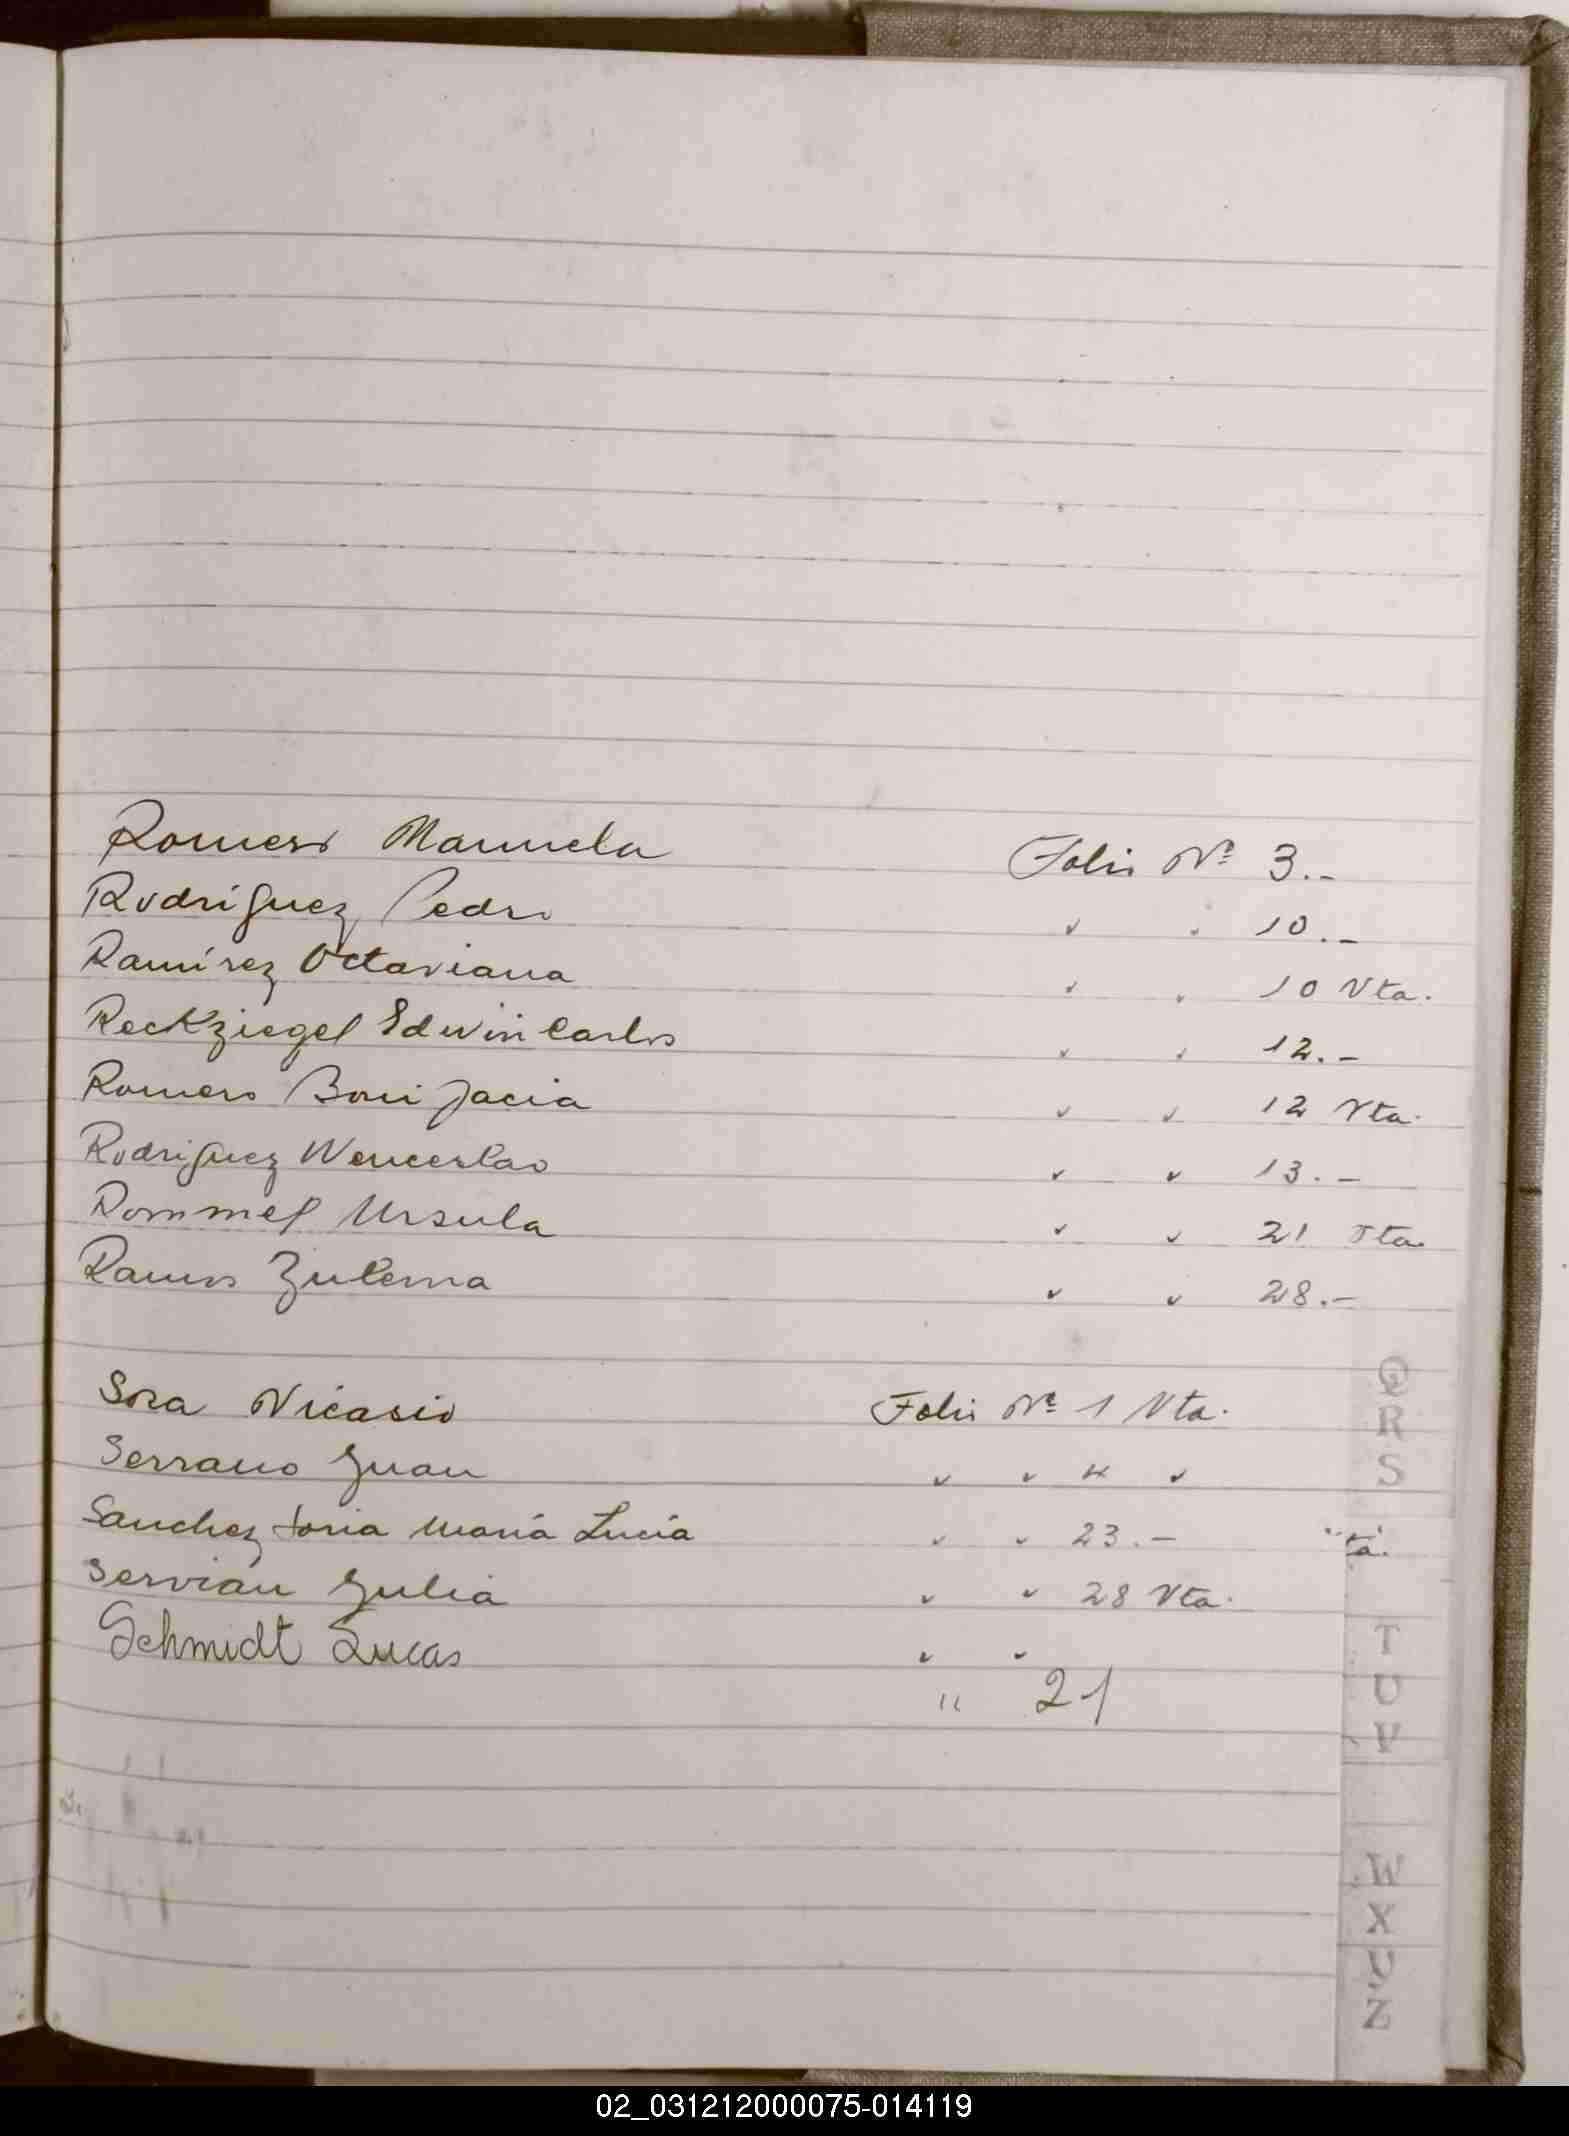 Romero Manuela Folio Nº 3.-
Rodriguez Pedro " " 10.-
Ramírez Octaviana " " 10 Vta.
Reckziegel Edwin Carlos " " 12.-
Romero Bonifacia " " 12 Vta.
Rodriguez Wenceslao " " 13.-
Rommel Ursula " " 21 Vta.
Ramos Zulema " " 28.-
Sosa Nicasio Folio Nº 1 Vta.
Serrano Juan " " 4 "
Sanchez Soria María Lucía " " 23.-
Servián Julia " " 28 Vta.
Schmidt Lucas " "
" 21
Q
R
S
ta.
T
U
V
W
X
Z
02_031212000075-014119